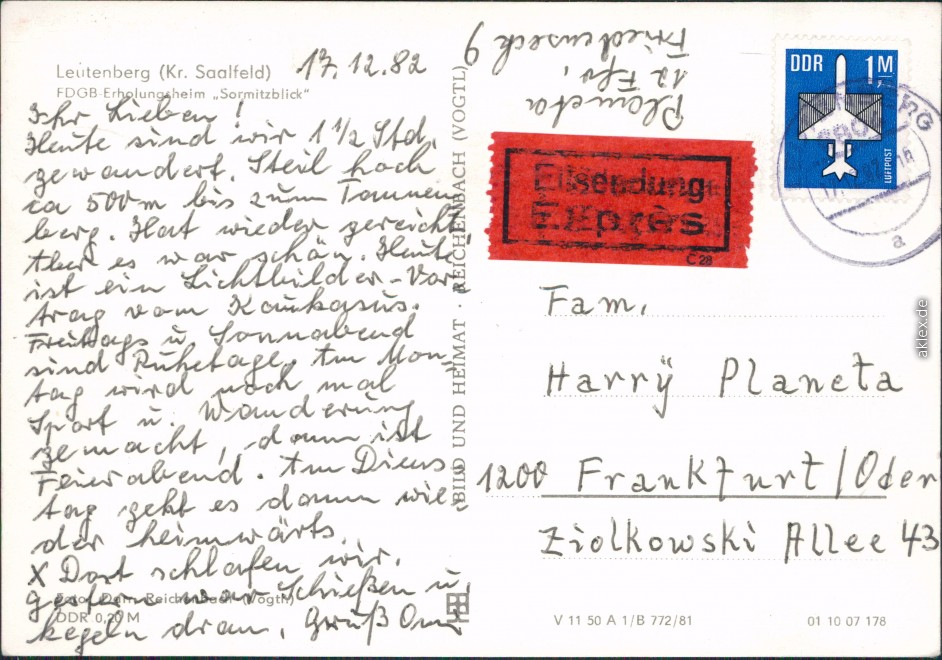 Leutenberg (Kr. Saalfeld)
FDGB-Erholungsheim „Sormitzblick"
17.12.82
Ihr Lieben!
Heute sind wir 1 1/2 Std.
gewandert. Steil hoch
ca 500m bis zum Tannen
berg. Hat wieder gereicht,
Aber es war schön. Heute
ist ein Lichtbilder-Vor
trag vom Kaukasus.
Freitags u. Sonnabend
sind Ruhetage. Am Mon
tag wird noch mal
Sport u. Wanderung
gemacht, dann ist
Feierabend. Am Diens
tag geht es dann wie-
der heimwärts.
X Dort schlafen wir.
Gestern war Schießen u.
kegeln dran. Gruß Omi
Foto: Darr, Reichenbach (Vogtl)
DDR 0,20 M
BILD UND HEIMAT · REICHENBACH (VOGTL)
Planeta
12 Ffo,
Friedenseck 9
DDR 1 M
LUFTPOST
a
Eilsendung
Exprès
C 28
Fam.
Harrÿ Planeta
1200 Frankfurt/Oder
Ziolkowski Allee 43
V 11 50 A 1/B 772/81
01 10 07 178
aklex.de